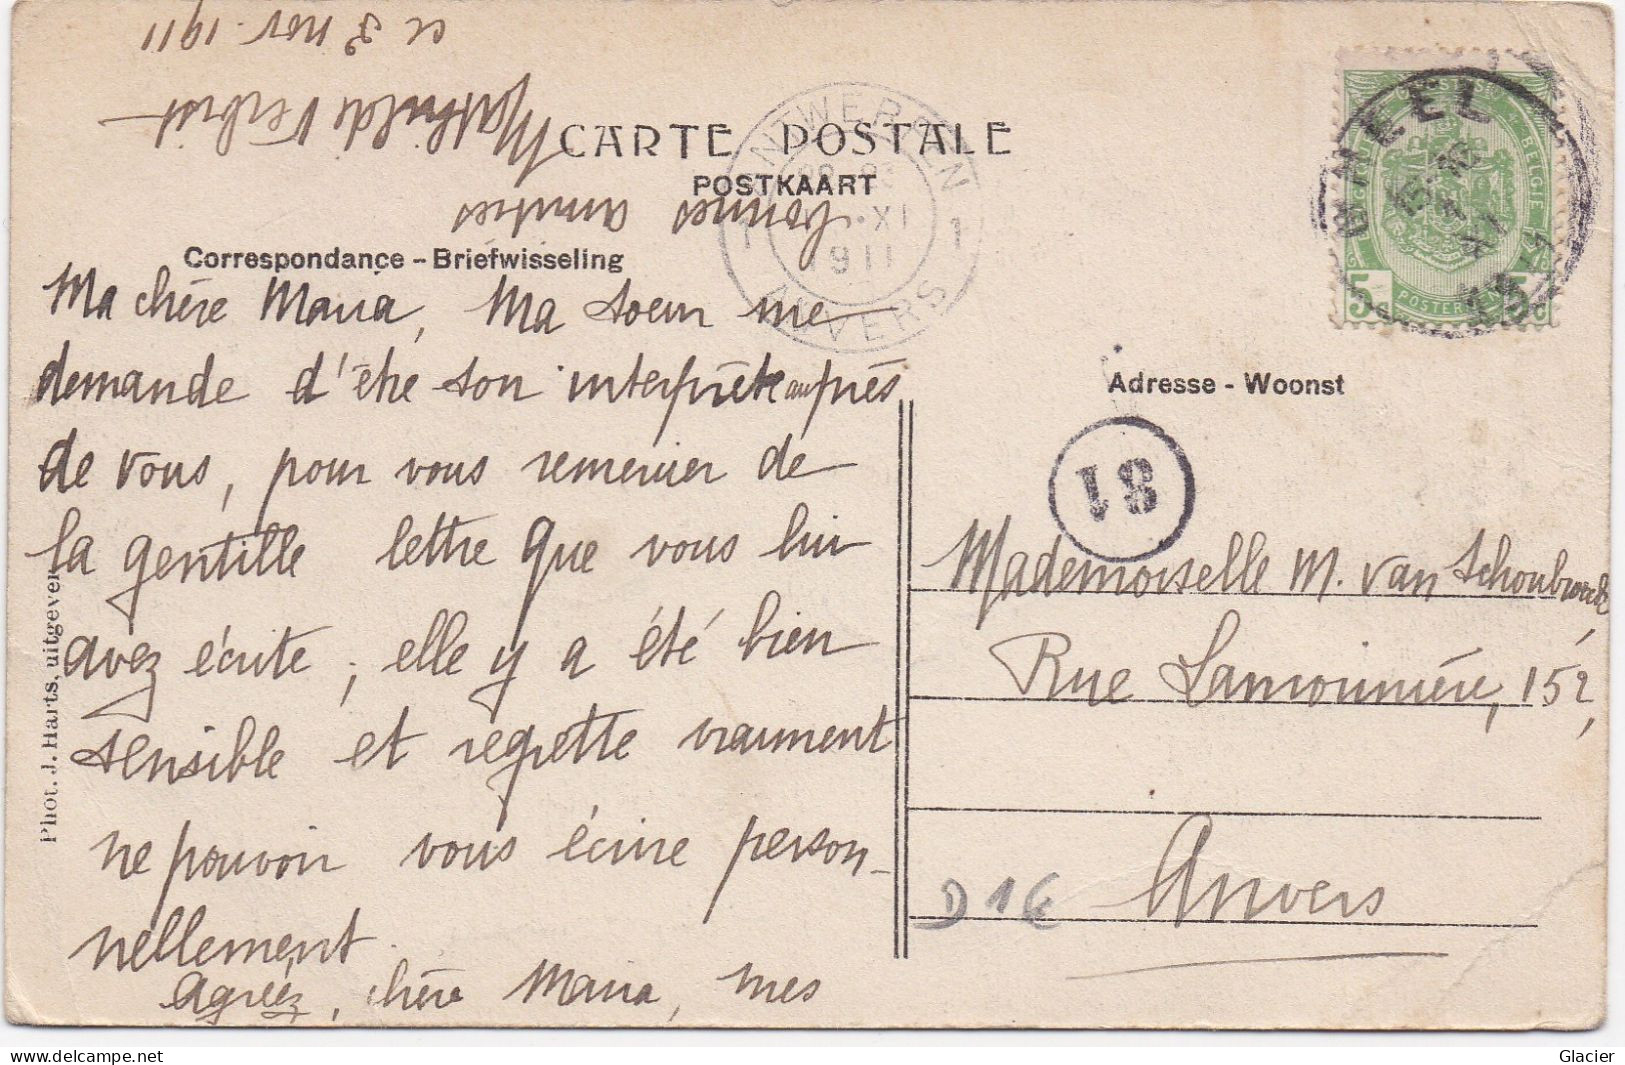 CARTE POSTALE
POSTKAART
Correspondance - Briefwisseling
Ma chère Maria, Ma soeur me
demande d'être son interprète auprès
de vous, pour vous remercier de
la gentille lettre que vous lui
avez écrite, elle y a été bien
sensible et regrette vraiment
ne pouvoir vous écrire person-
nellement.
Agréez, chère Maria, mes
bonnes amitiés
Mathilde
ce 3 nov. 1911
Phot. J. Harts, uitgever
ANTWERPEN
XI
1911
1 1
ANVERS
GHEEL
XI
BELGIE
POSTERIJEN
5c 5c
Adresse - Woonst
81
Mademoiselle M. van Schoubroeck
Rue Lamorinière, 152,
Anvers
D 1€
Glacier